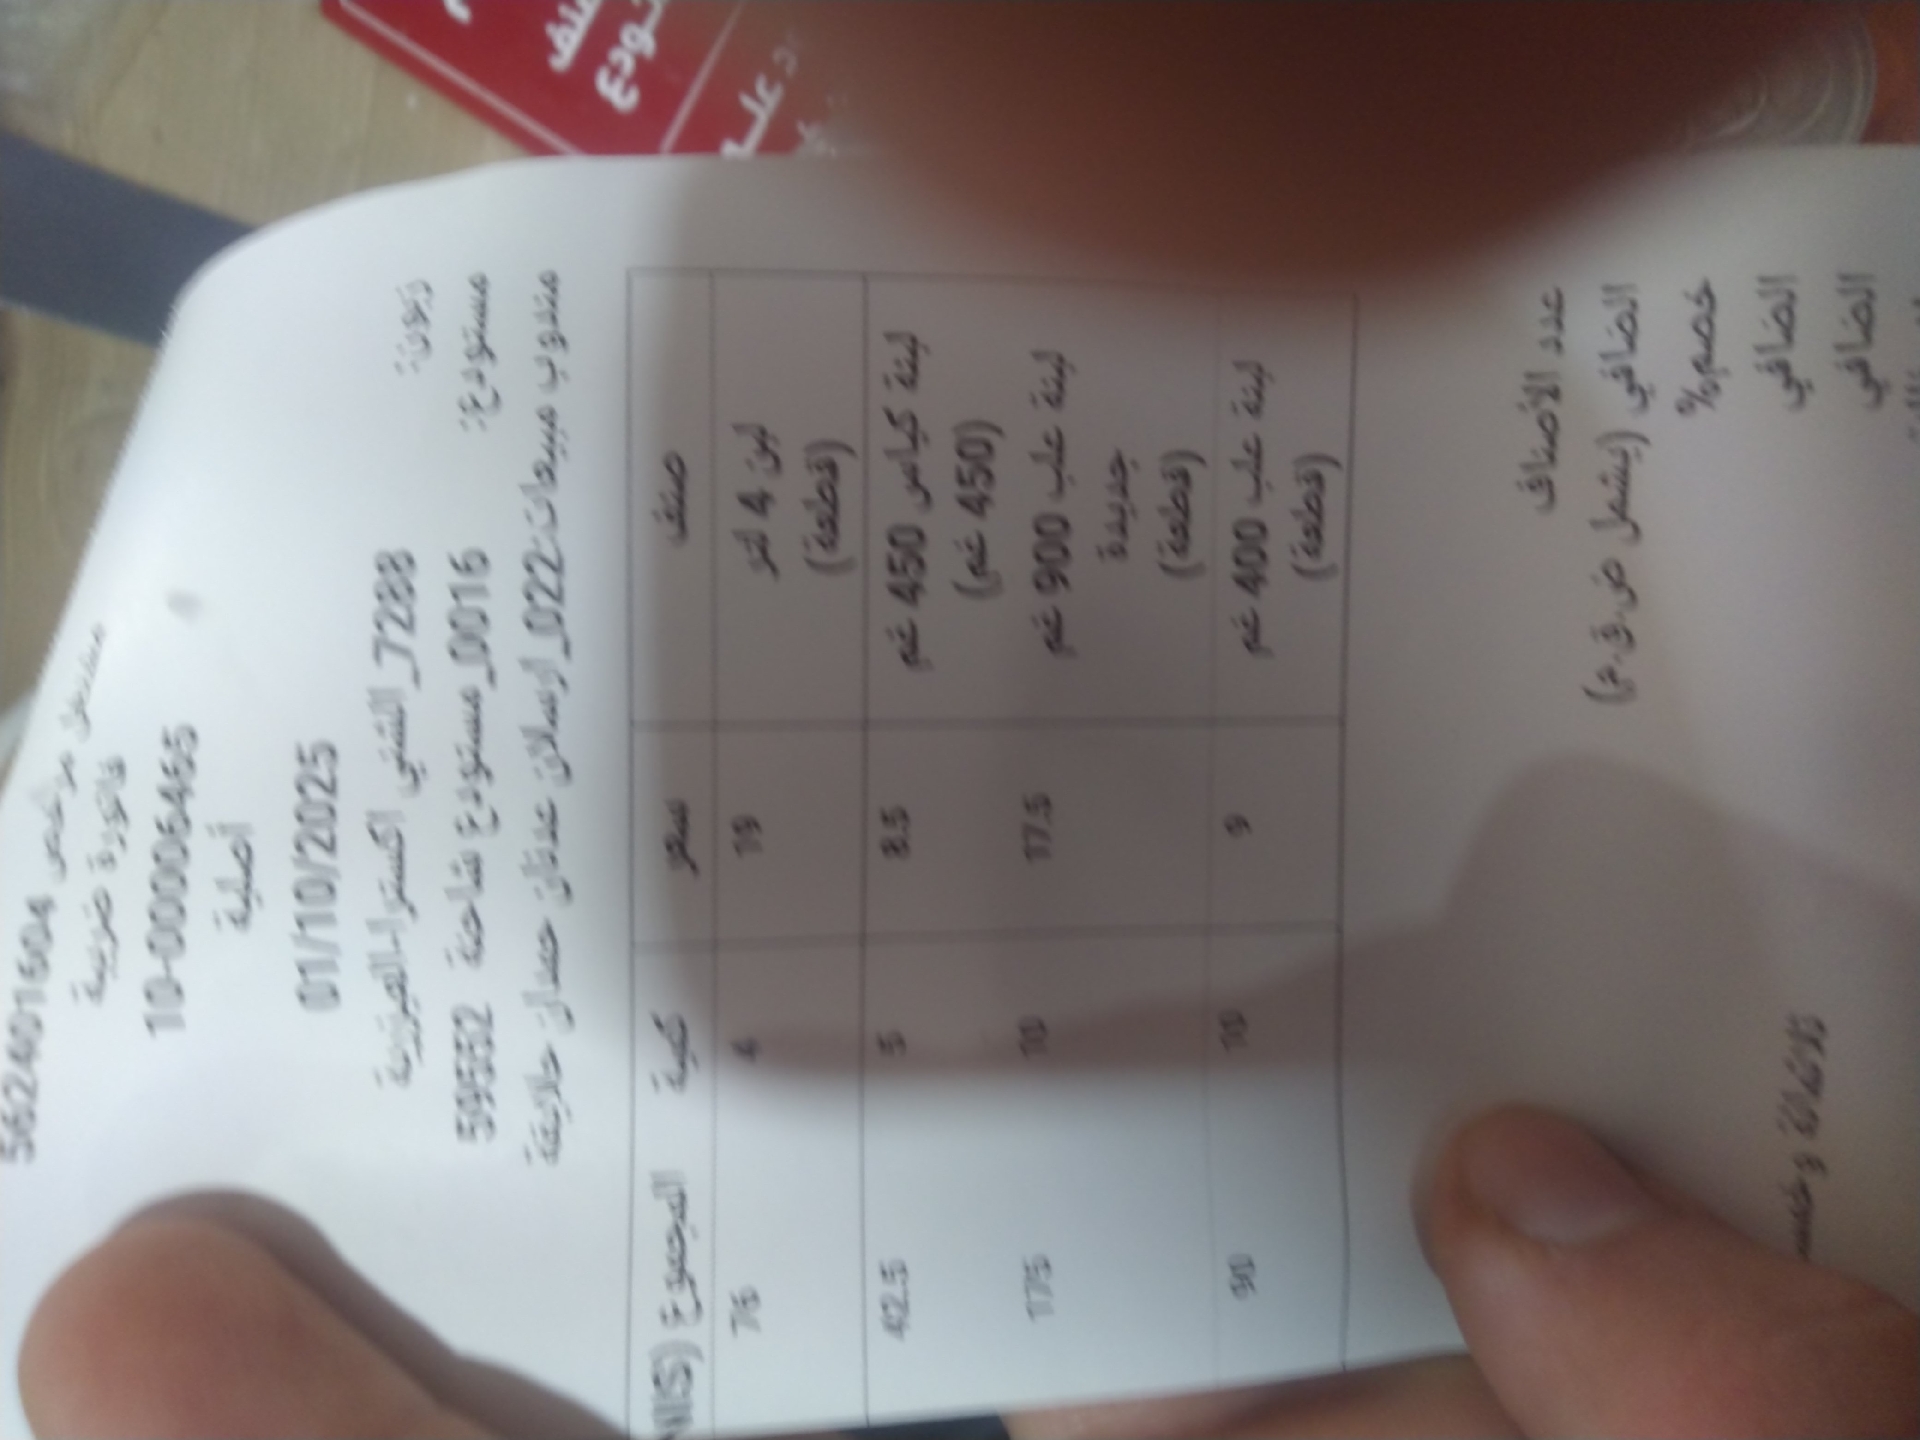 562401604 مشتغل مرخص
فاتورة ضريبية
10-000006465
أصلية
01/10/2025
زبون: 7288_الشني اكسترا-العيزرية
مستودع: 0016_مستودع شاحنة 59552
مندوب مبيعات:022_ارسلان عدنان حمدان حلايقة
صنف سعر كمية المجموع (NIS)
لبن 4 لتر 19 4 76
(قطعة)
لبنة كياس 450 غم 8.5 5 42.5
(450 غم)
لبنة علب 900 غم 17.5 10 175
جديدة
(قطعة)
لبنة علب 400 غم 9 10 90
(قطعة)
عدد الأصناف
الصافي (يشمل ض.ق.م)
خصم%
الصافي ثلاثمائة و
الصافي
تودع
د عليه